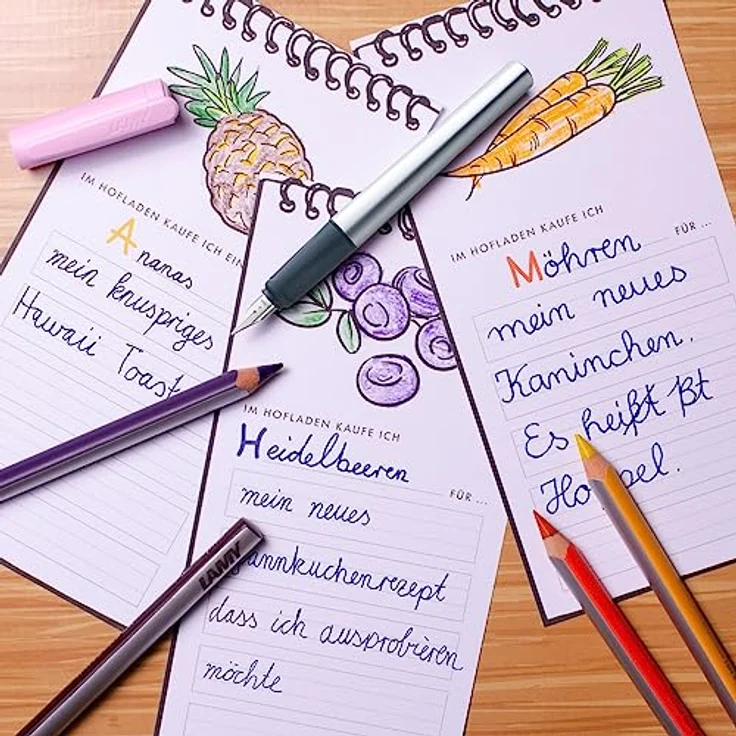 LAMY
IM HOFLADEN KAUFE ICH EIN
Ananas
mein knuspriges
Hawaii Toast
IM HOFLADEN KAUFE ICH
Heidelbeeren
FÜR ...
mein neues
annkuchenrezept
dass ich ausprobieren
möchte
LAMY
IM HOFLADEN KAUFE ICH
Möhren
FÜR ...
mein neues
Kaninchen.
Es heißt ßt